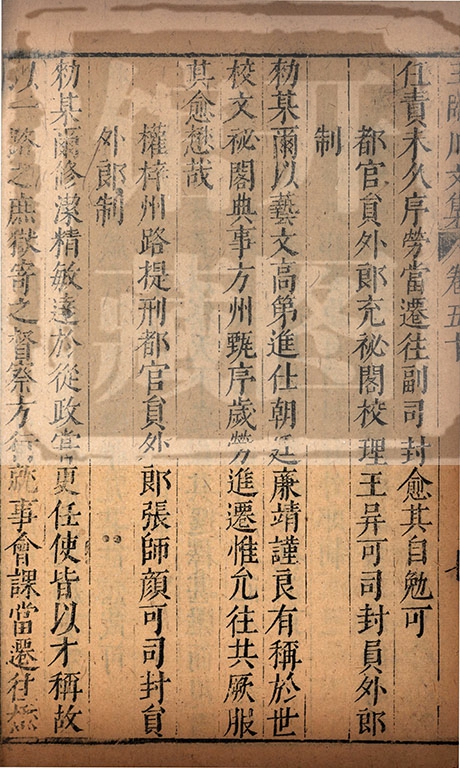 王臨川文集 卷五十
任責未久序勞當遷往副司封愈其自勉可
都官員外郎充祕閣校理王异可司封員外郎
制
勑某爾以藝文高第進仕朝廷廉靖謹良有稱於世
校文祕閣典事方州甄序歲勞進遷惟允往共厥服
其愈懋哉
權梓州路提刑都官員外郎張師顔可司封員
外郎制
勑某爾修潔精敏達於從政嘗更任使皆以才稱故
以一路之庶獄寄之督察方行就事會課當遷往